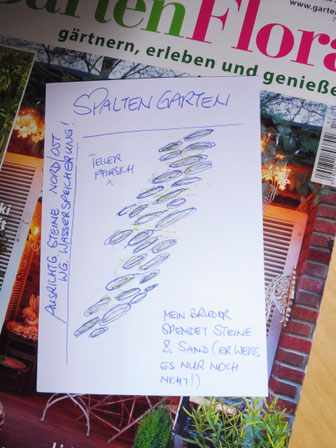 GartenFlora
www.garten
gärtnern, erleben und genieße
SPALTENGARTEN
TELLER
PFIRSICH
x
AUSRICHTG STEINE NORD/OST
WG. WASSERSPEICHERUNG!
MEIN BRUDER
SPENDET STEINE
& SAND (ER WEISS
ES NUR NOCH
NICHT!)